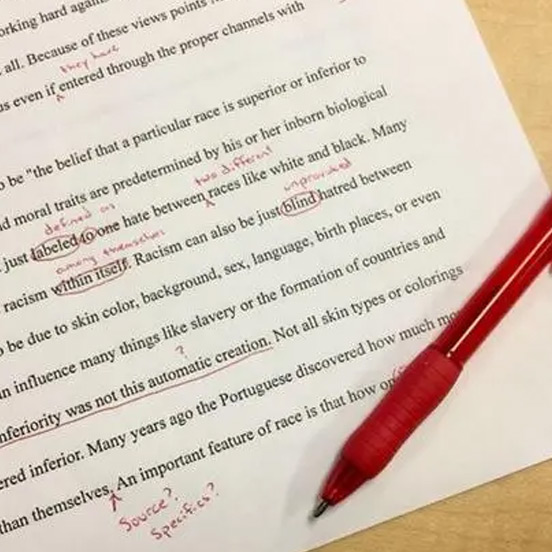 orking hard against
all. Because of these views points
they have
us even if entered through the proper channels with
o be "the belief that a particular race is superior or inferior to
nd moral traits are predetermined by his or her inborn biological
two different
races like white and black. Many
defined as
just labeled to one hate between
unprovoked
among themselves
racism within itself. Racism can also be just blind hatred between
o be due to skin color, background, sex, language, birth places, or even
n influence many things like slavery or the formation of countries and
?
nferiority was not this automatic creation. Not all skin types or colorings
ered inferior. Many years ago the Portuguese discovered how much mo
than themselves. An important feature of race is that how on
Source?
Specifics?